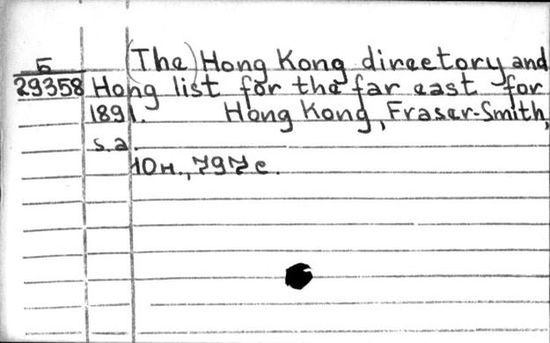 Б
29358
(The) Hong Kong directory and
Hong list for the far east for
1891. Hong Kong, Fraser-Smith,
s.a.
10н., 797с.